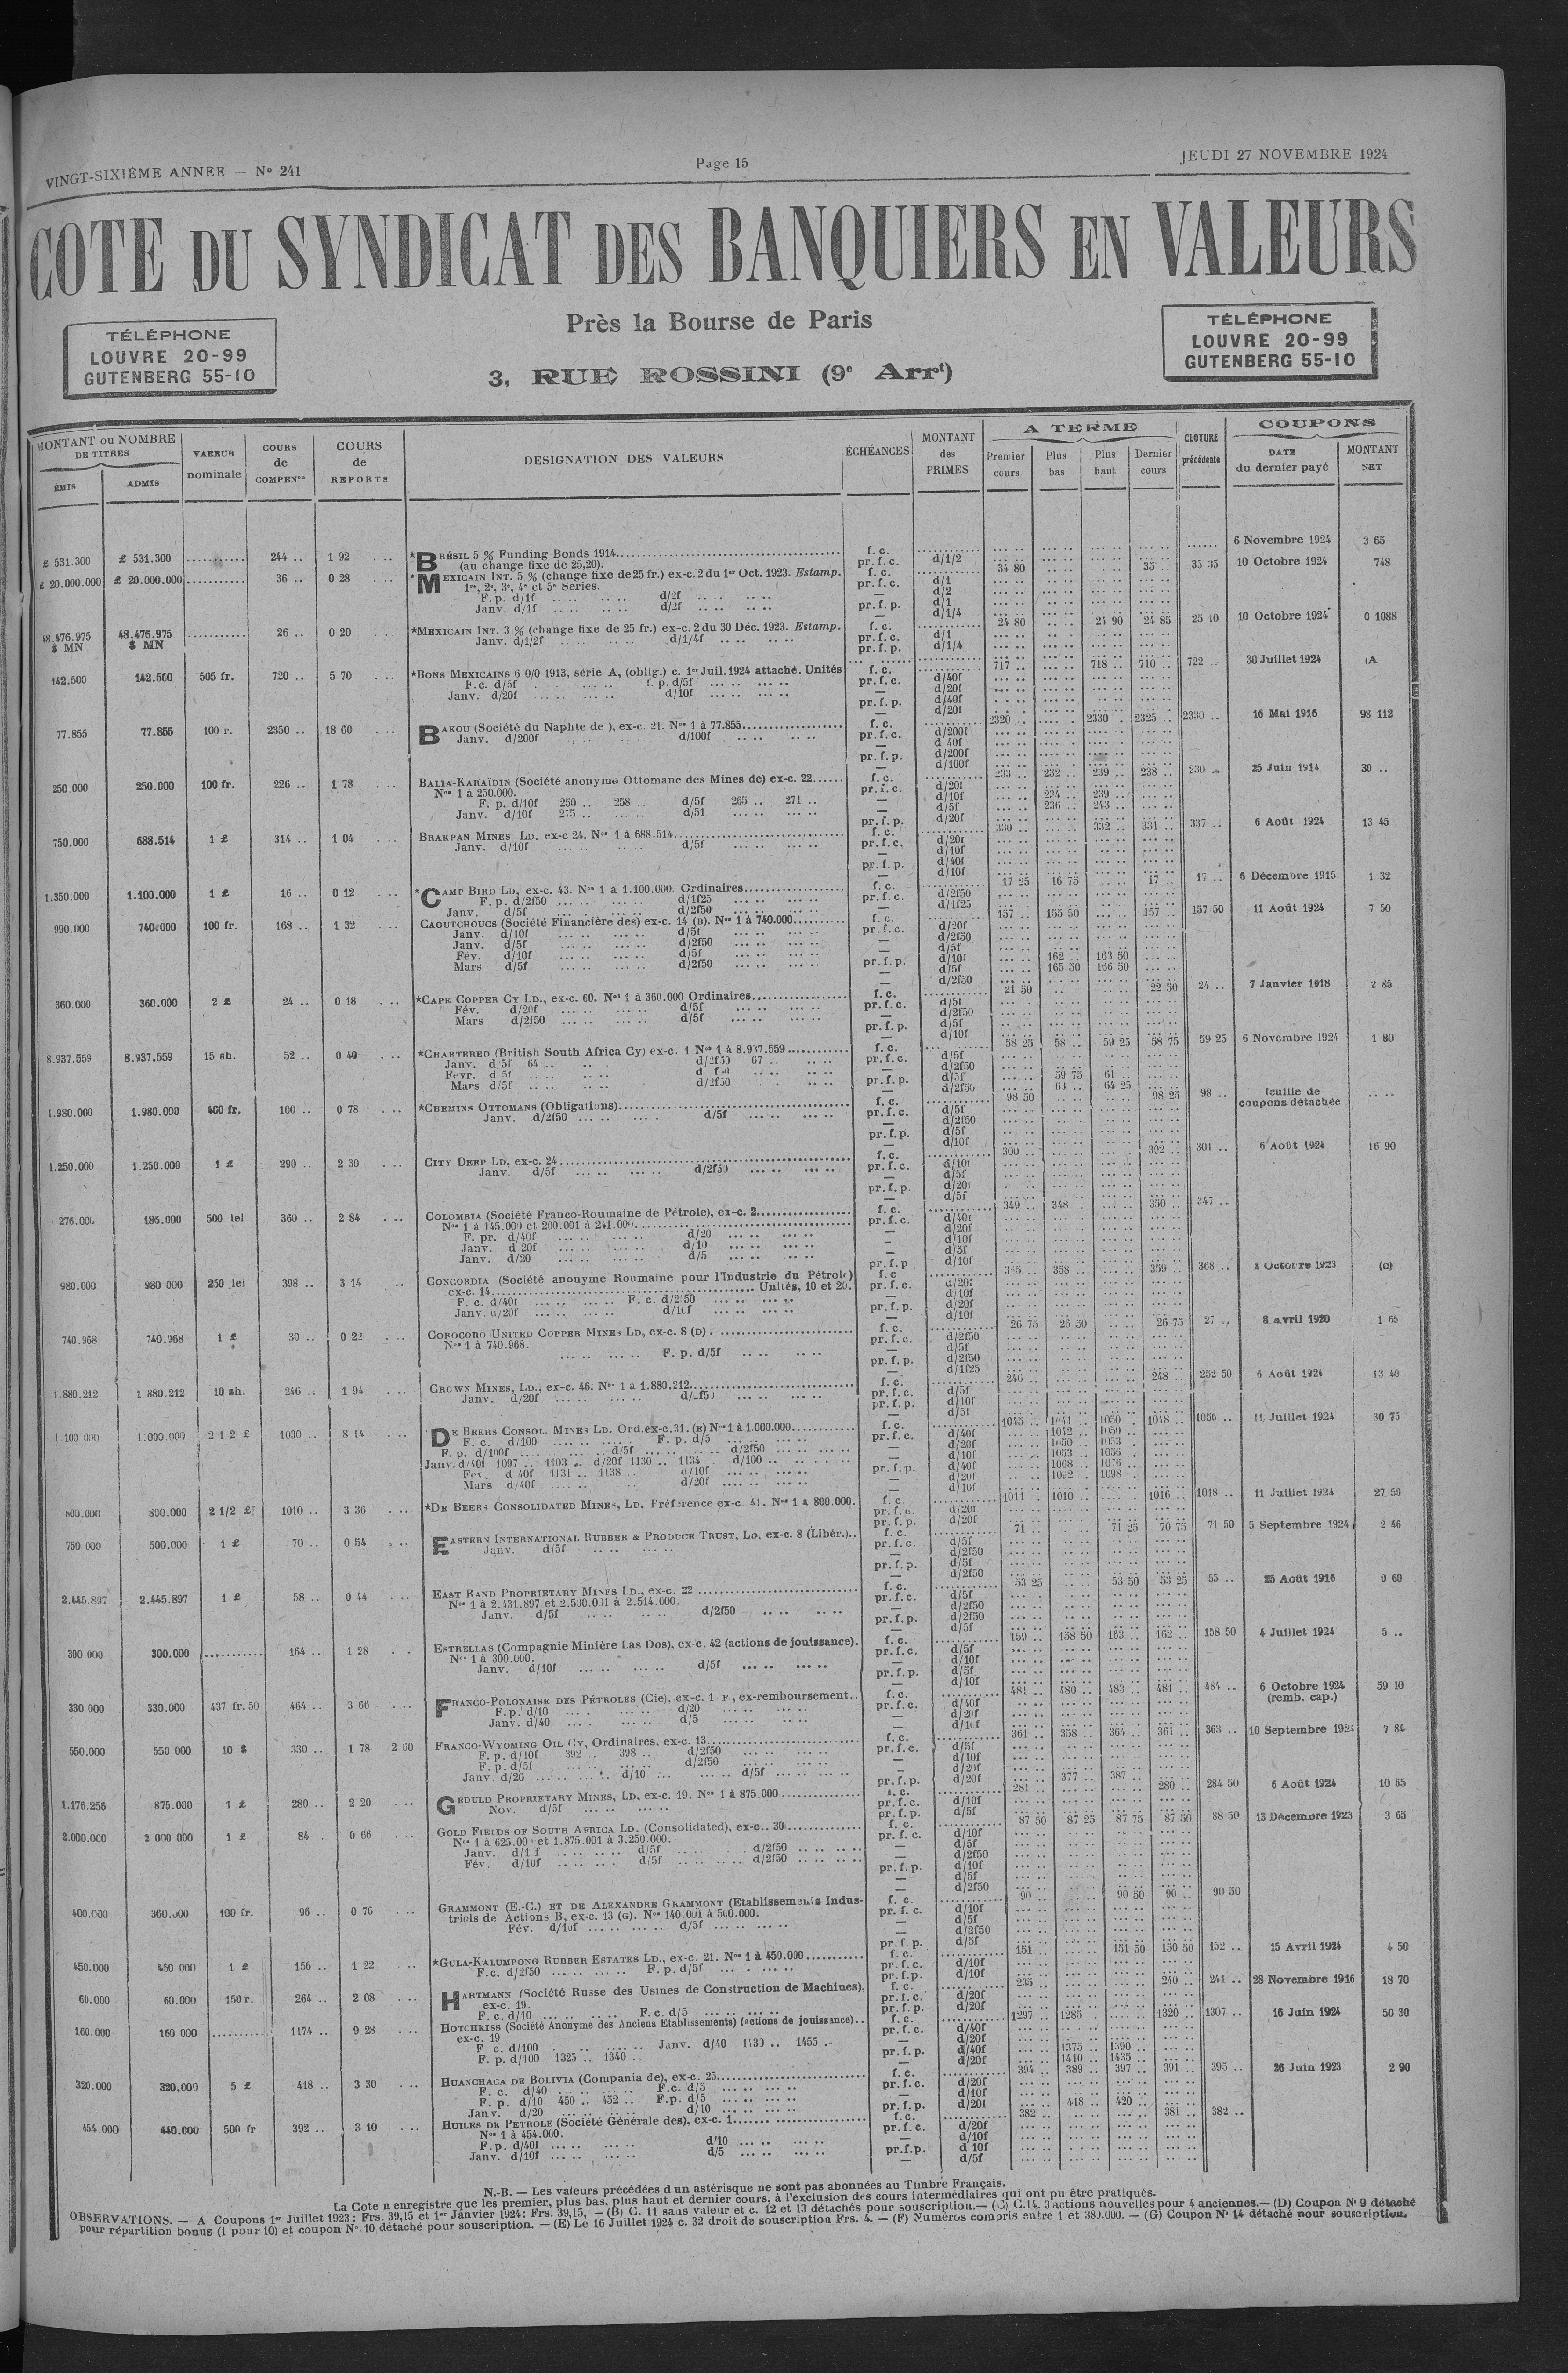 VINGT-SIXIÈME ANNEE — No 241
Page 15
JEUDI 27 NOVEMBRE 1924
COTE DU SYNDICAT DES BANQUIERS EN VALEURS
Près la Bourse de Paris
3, RUE ROSSINI (9e Arrt)
TÉLÉPHONE
LOUVRE 20-99
GUTENBERG 55-10
TÉLÉPHONE
LOUVRE 20-99
GUTENBERG 55-10
MONTANT ou NOMBRE DE TITRES
EMIS ADMIS
VALEUR nominale
COURS de COMPENson
COURS de REPORTS
DESIGNATION DES VALEURS
ÉCHÉANCES
MONTANT des PRIMES
A TERME
Premier cours Plus bas Plus haut Dernier cours
CLOTURE précédente
COUPONS
DATE du dernier payé
MONTANT NET
£ 531.300 £ 531.300 244 .. 1 92 *BRÉSIL 5 % Funding Bonds 1914 f. c. 6 Novembre 1924 3 65
(au change fixe de 25,20). pr. f. c. d/1/2
£ 20.000.000 £ 20.000.000 36 .. 0 28 *MEXICAIN INT. 5 % (change fixe de 25 fr.) ex-c. 2 du 1er Oct. 1923. Estamp. f. c. 34 80 35 35 35 10 Octobre 1924 748
1re, 2e, 3e, 4e et 5e Series. pr. f. c. d/1
F. p. d/1f d/2f — d/2
Janv. d/1f d/2f pr. f. p. d/1
d/1/4
48.476.975 $ MN 48.476.975 $ MN 26 .. 0 20 *MEXICAIN INT. 3 % (change fixe de 25 fr.) ex-c. 2 du 30 Déc. 1923. Estamp. f. c. 24 80 24 90 24 85 25 10 10 Octobre 1924 0 1088
Janv. d/1/2f d/1/4f pr. f. c. d/1
pr. f. p. d/1/4
142.500 142.500 505 fr. 720 .. 5 70 *BONS MEXICAINS 6 0/0 1913, série A, (oblig.) c. 1er Juil. 1924 attaché. Unités f. c. 717 .. 718 .. 710 .. 722 .. 30 Juillet 1924 (A
F.c. d/5f f. p. d/5f pr. f. c. d/40f
Janv. d/20f d/10f — d/20f
pr. f. p. d/40f
— d/20f
77.855 77.855 100 r. 2350 .. 18 60 BAKOU (Société du Naphte de ), ex-c. 21. Nos 1 à 77.855 f. c. 2320 .. 2330 2325 .. 2330 .. 16 Mai 1916 98 112
Janv. d/200f d/100f pr. f. c. d/200f
— d 40f
pr. f. p. d/200f
— d/100f
250.000 250.000 100 fr. 226 .. 1 78 BALIA-KARAÏDIN (Société anonyme Ottomane des Mines de) ex-c. 22 f. c. 233 .. 232 .. 239 .. 238 .. 230 25 Juin 1914 30 ..
Nos 1 à 250.000. pr. f. c. d/20f
F. p. d/10f 250 .. 258 .. d/5f 265 .. 271 .. — d/10f 234 .. 239 ..
Janv. d/10f 275 .. d/5f — d/5f 236 .. 243 ..
pr. f. p. d/20f
750.000 688.514 1 £ 314 .. 1 04 BRAKPAN MINES LD, ex-c 24. Nos 1 à 688.514 f. c. 330 .. 332 .. 331 .. 337 .. 6 Août 1924 13 45
Janv. d/10f d/5f pr. f. c. d/20f
— d/10f
pr. f. p. d/40f
— d/10f
1.350.000 1.100.000 1 £ 16 .. 0 12 *CAMP BIRD LD, ex-c. 43. Nos 1 à 1.100.000. Ordinaires f. c. 17 25 16 75 17 .. 17 .. 6 Décembre 1915 1 32
F. p. d/2f50 d/1f25 pr. f. c. d/2f50
Janv. d/5f d/2f50 — d/1f25
990.000 740.000 100 fr. 168 .. 1 32 CAOUTCHOUCS (Société Financière des) ex-c. 14 (B). Nos 1 à 740.000 f. c. 157 .. 155 50 157 .. 157 50 11 Août 1924 7 50
Janv. d/10f d/5f pr. f. c. d/20f
Janv. d/5f d/2f50 — d/2f50
Fév. d/10f d/5f — d/5f
Mars d/5f d/2f50 pr. f. p. d/10f 162 .. 163 50
— d/5f 165 50 166 50
— d/2f50
360.000 360.000 2 £ 24 .. 0 18 *CAPE COPPER CY LD., ex-c. 60. Nos 1 à 360.000 Ordinaires f. c. 21 50 22 50 24 .. 7 Janvier 1918 2 85
Fév. d/20f d/5f pr. f. c. d/5f
Mars d/2f50 d/5f — d/2f50
pr. f. p. d/5f
— d/10f
8.937.559 8.937.559 15 sh. 52 .. 0 40 *CHARTERED (British South Africa Cy) ex-c. 1 Nos 1 à 8.937.559 f. c. 58 25 58 .. 59 25 58 75 59 25 6 Novembre 1924 1 80
Janv. d 5f 64 .. d/2f50 67 .. pr. f. c. d/5f
Fevr. d 5f — d/2f50
Mars d/5f d/2f50 pr. f. p. d/5f 59 75 61 ..
— d/2f50 64 25
1.980.000 1.980.000 400 fr. 100 .. 0 78 *CHEMINS OTTOMANS (Obligations) f. c. 98 50 98 25 98 .. feuille de coupons détachée
Janv. d/2f50 d/5f pr. f. c. d/5f
— d/2f50
pr. f. p. d/5f
— d/10f
1.250.000 1.250.000 1 £ 290 .. 2 30 CITY DEEP LD, ex-c. 24 f. c. 300 .. 302 .. 301 .. 6 Août 1924 16 90
Janv. d/5f d/2f50 pr. f. c. d/10f
— d/5f
pr. f. p. d/20f
— d/5f
186.000 500 lei 360 .. 2 84 COLOMBIA (Société Franco-Roumaine de Pétrole), ex-c. 2 f. c. 349 .. 348 .. 350 .. 347 ..
Nos 1 à 145.000 et 200.001 à 241.000 pr. f. c. d/40f
F. pr. d/40f d/20 — d/20f
Janv. d 20f d/10 — d/10f
Janv. d/20 d/5 — d/5f
pr. f. p d/10f
980.000 980 000 250 lei 398 .. 3 14 CONCORDIA (Société anonyme Roumaine pour l'Industrie du Pétrole) f. c 358 .. 359 .. 368 .. Octobre 1923 (c)
ex-c. 14 Unités, 10 et 20. pr. f. c. d/20f
F. c. d/40f F. c. d/2f50 — d/10f
Janv. d/20f d/10f pr. f. p. d/20f
— d/10f
740.968 740.968 1 £ 30 .. 0 22 COROCORO UNITED COPPER MINES LD, ex-c. 8 (D) f. c. 26 75 26 50 26 75 27 .. 8 avril 1920 1 65
Nos 1 à 740.968. pr. f. c. d/2f50
F. p. d/5f — d/5f
pr. f. p. d/2f50
— d/1f25
1.880.212 1 880.212 10 sh. 246 .. 1 94 CROWN MINES, LD., ex-c. 46. Nos 1 à 1.880.212 f. c. 246 .. 248 .. 252 50 6 Août 1924 13 40
Janv. d/20f pr. f. c. d/5f
pr. f. p. d/10f
— d/5f
1 100 000 1.000.000 2 1 2 £ 1030 .. 8 14 DE BEERS CONSOL. MINES LD. Ord.ex-c.31. (E) Nos 1 à 1.000.000 f. c. 1045 .. 1041 .. 1050 1048 .. 1056 .. 11 Juillet 1924 30 75
F. c. d/100 F. p. d/5 pr. f. c. d/40f 1042 .. 1050 ..
F. p. d/100f d/5f d/2f50 — d/20f 1050 .. 1053
Janv. d/40f 1097 .. 1103 .. d/20f 1130 .. 1134 d/100 — d/10f 1053 .. 1056
Fev. d 40f 1131 .. 1138 d/10f pr. f. p. d/40f 1068 .. 1076 ..
Mars d/40f d/20f — d/20f 1092 1098
— d/10f
800.000 800.000 2 1/2 £ 1010 .. 3 36 *DE BEERS CONSOLIDATED MINES, LD. Préférence ex-c. 41. Nos 1 à 800.000. f. c. 1011 1010 .. 1016 .. 1018 .. 11 Juillet 1924 27 50
pr. f. c. d/20f
pr. f. p. d/20f
750 000 500.000 1 £ 70 .. 0 54 EASTERN INTERNATIONAL RUBBER & PRODUCE TRUST, LD, ex-c. 8 (Libér.) f. c. 71 .. 71 25 70 75 71 50 5 Septembre 1924 2 46
Janv. d/5f pr. f. c. d/5f
— d/2f50
pr. f. p. d/5f
— d/2f50
2.445.897 2.445.897 1 £ 58 .. 0 44 EAST RAND PROPRIETARY MINES LD., ex-c. 22 f. c. 53 25 53 50 53 25 55 .. 25 Août 1916 0 60
Nos 1 à 2.431.897 et 2.500.001 à 2.514.000. pr. f. c. d/5f
Janv. d/5f d/2f50 — d/2f50
pr. f. p. d/2f50
— d/5f
300.000 300.000 164 .. 1 28 ESTRELLAS (Compagnie Minière Las Dos), ex-c. 42 (actions de jouissance). f. c. 159 .. 158 50 163 .. 162 .. 158 50 4 Juillet 1924 5 ..
Nos 1 à 300.000. pr. f. c. d/5f
Janv. d/10f d/5f — d/10f
pr. f. p. d/5f
— d/10f
330 000 330.000 437 fr. 50 464 .. 3 66 FRANCO-POLONAISE DES PÉTROLES (Cie), ex-c. 1 F., ex-remboursement f. c. 481 .. 480 .. 483 .. 481 .. 484 .. 6 Octobre 1924 59 10
F.p. d/10 d/20 pr. f. c. d/40f (remb. cap.)
Janv. d/40 d/5 — d/20f
— d/10f
550.000 550 000 10 $ 330 .. 1 78 2 60 FRANCO-WYOMING OIL CY, Ordinaires, ex-c. 13 f. c. 361 .. 358 .. 364 .. 361 .. 363 .. 10 Septembre 1924 7 84
F. p. d/10f 392 .. 398 .. d/2f50 pr. f. c. d/5f
F. p. d/5f d/2f50 — d/10f
Janv. d/20 d/10 d/5f — d/20f
pr. f. p. d/20f 377 .. 387 ..
1.176.256 875.000 1 £ 280 .. 2 20 GEDULD PROPRIETARY MINES, LD, ex-c. 19. Nos 1 à 875.000 f. c. 281 .. 280 .. 284 50 6 Août 1924 10 65
Nov. d/5f pr. f. c. d/10f
pr. f. p. d/5f
2.000.000 2 000 000 1 £ 84 . 0 66 GOLD FIELDS OF SOUTH AFRICA LD. (Consolidated), ex-c.. 30 f. c. 87 50 87 25 87 75 87 50 88 50 13 Décembre 1923 3 65
Nos 1 à 625.00 et 1.875.001 à 3.250.000. pr. f. c. d/10f
Janv. d/5f d/2f50 — d/5f
Fév. d/10f d/5f d/2f50 — d/2f50
pr. f. p. d/10f
— d/5f
— d/2f50
400.000 360.000 100 fr. 96 .. 0 76 GRAMMONT (E.-C.) ET DE ALEXANDRE GRAMMONT (Etablissements Indus- f. c. 90 .. 90 50 90 .. 90 50
triels de Actions B, ex-c. 13 (G). Nos 140.001 à 500.000. pr. f. c. d/10f
Fév. d/10f d/5f — d/5f
— d/2f50
pr. f. p. d/5f
450.000 450 000 1 £ 156 .. 1 22 *GULA-KALUMPONG RUBBER ESTATES LD., ex-c. 21. Nos 1 à 450.000 f. c. 151 .. 151 50 150 50 152 .. 15 Avril 1924 4 50
F.c. d/2f50 F. p. d/5f pr. f. c. d/10f
pr. f. p. d/10f
60.000 60.000 150 r. 264 .. 2 08 HARTMANN (Société Russe des Usines de Construction de Machines), f. c. 235 .. 240 .. 241 .. 28 Novembre 1916 18 70
ex-c. 19. pr. f. c. d/20f
F. c. d/10 F. c. d/5 pr. f. p. d/20f
160.000 160 000 1174 .. 9 28 HOTCHKISS (Société Anonyme des Anciens Etablissements) (actions de jouissance) f. c. 1297 1285 1320 1307 .. 16 Juin 1924 50 30
ex-c. 19 pr. f. c. d/40f
F c. d/100 Janv. d/40 1430 .. 1455 .. — d/20f
F. p. d/100 1325 .. 1340 .. pr. f. p. d/40f 1375 .. 1390 ..
— d/20f 1410 .. 1435 ..
320.000 320.000 5 £ 418 .. 3 30 HUANCHACA DE BOLIVIA (Compania de), ex-c. 25 f. c. 394 389 .. 397 .. 391 .. 395 .. 26 Juin 1923 2 90
F. c. d/40 F.c. d/5 pr. f. c. d/20f
F. p. d/10 450 .. 452 .. F.p. d/5 — d/10f
Janv. d/20 d/10 pr. f. p. d/20f 418 .. 420 ..
454.000 440.000 500 fr 392 .. 3 10 HUILES DE PÉTROLE (Société Générale des), ex-c. 1 f. c. 382 .. 381 .. 382 ..
Nos 1 à 454.000. pr. f. c. d/20f
F.p. d/40f d/10 — d/10f
Janv. d/10f d/5 pr.f.p. d 10f
— d/5f
N.-B. — Les valeurs précédées d un astérisque ne sont pas abonnées au Timbre Français.
La Cote n enregistre que les premier, plus bas, plus haut et dernier cours, à l'exclusion des cours intermédiaires qui ont pu être pratiqués.
OBSERVATIONS. — A Coupons 1er Juillet 1923 : Frs. 39,15 et 1er Janvier 1924 : Frs. 39,15, — (B) C. 11 sans valeur et c. 12 et 13 détachés pour souscription. — (C) C.14. 3 actions nouvelles pour 4 anciennes. — (D) Coupon No 9 détaché
pour répartition bonus (1 pour 10) et coupon No 10 détaché pour souscription. — (E) Le 16 Juillet 1924 c. 32 droit de souscription Frs. 4. — (F) Numéros compris entre 1 et 380.000. — (G) Coupon No 14 détaché pour souscription.